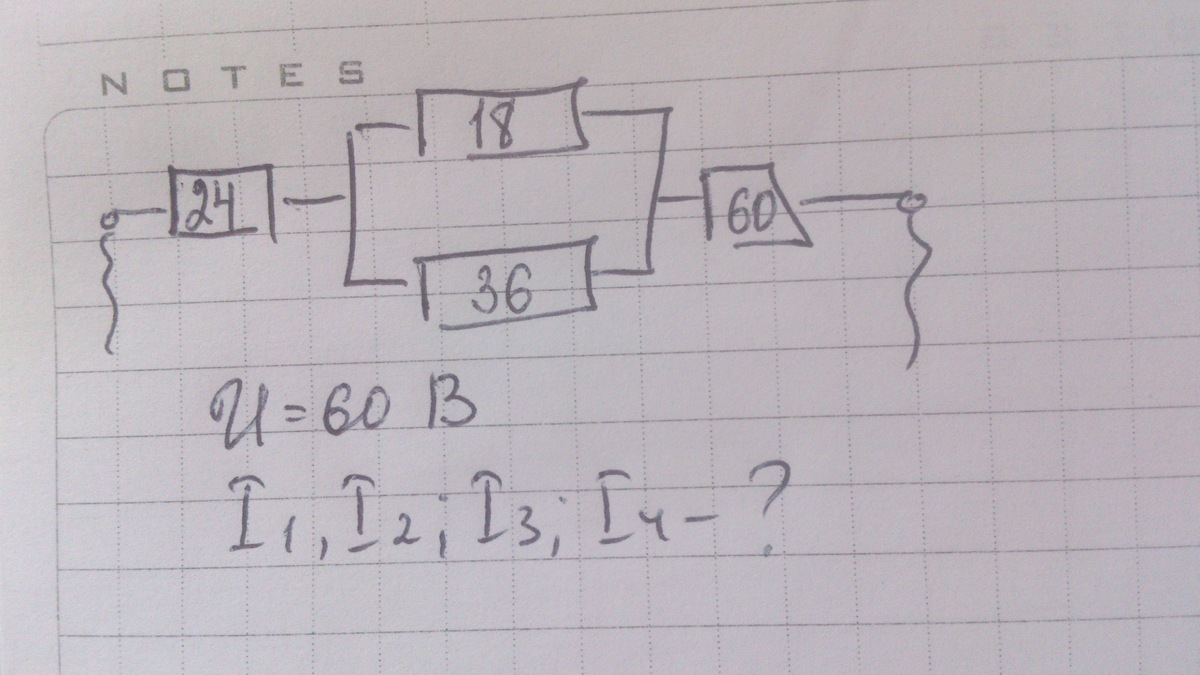 NOTES
18
24
60
36
U = 60 В
I₁, I₂; I₃; I₄ - ?